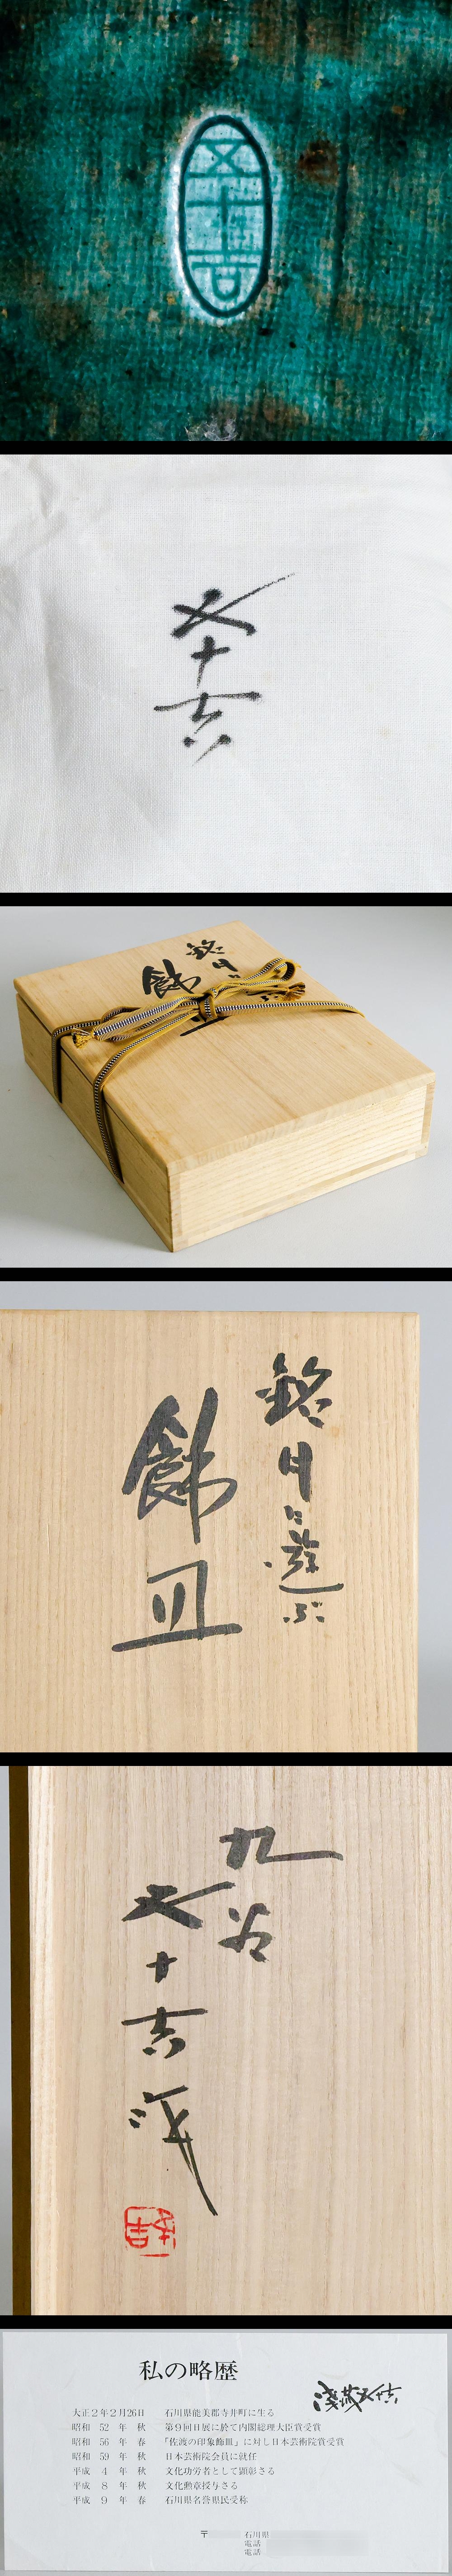 五十吉
五十吉
銘月に遊ぶ
飾皿
銘月に遊ぶ
飾皿
九谷
五十吉 作
私の略歴
淺蔵五十吉
大正2年2月26日 石川県能美郡寺井町に生る
昭和 52 年 秋 第9回日展に於て内閣総理大臣賞受賞
昭和 56 年 春 「佐渡の印象飾皿」に対し日本芸術院賞受賞
昭和 59 年 秋 日本芸術院会員に就任
平成 4 年 秋 文化功労者として顕彰さる
平成 8 年 秋 文化勲章授与さる
平成 9 年 春 石川県名誉県民受称
〒 石川県
電話
電話